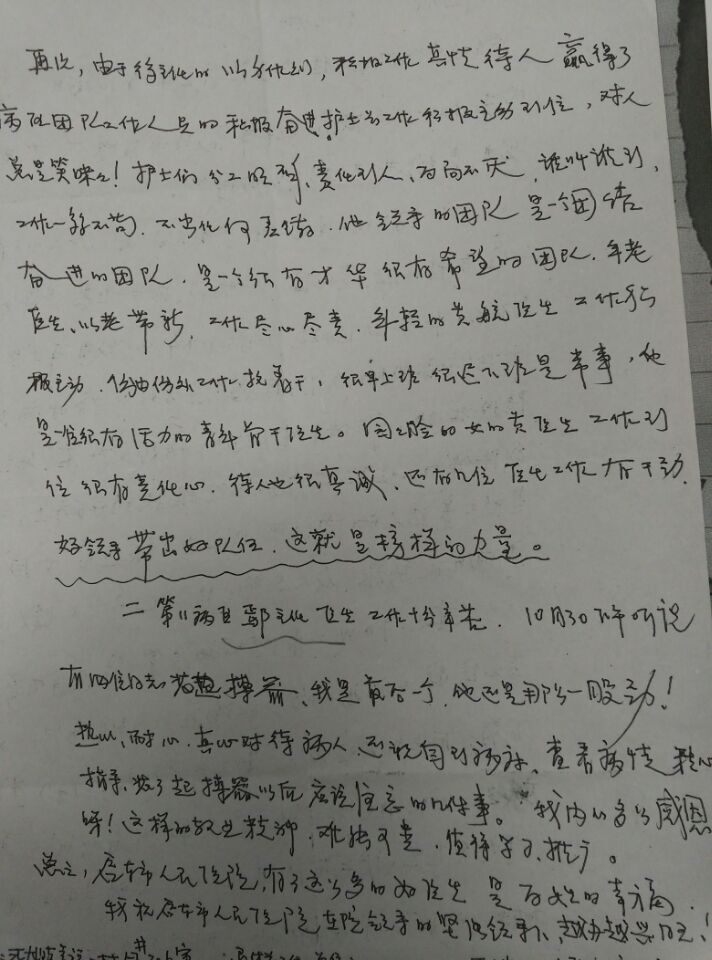 再次,由于徐主任的以身作则,积极工作 真情待人 赢得了
病区团队工作人员的积极奋进,护士们工作积极主动到位,对人
总是笑咪咪!护士们分工明确、责任到人、百问不厌,谁叫谁到,
工作一丝不苟.不出任何差错.他领导的团队是一个团结
奋进的团队.是一个很有才华很有希望的团队.年老
医生、以老带新,工作尽心尽责.年轻的黄航医生工作积
极主动.工作抢着干,很早上班 很迟下班是常事,他
是一位很有活力的青年骨干医生。圆圆脸的女的黄医生工作到
位 很有责任心.待人也很真诚、还有几位医生工作有干劲.
好领导带出好队伍.这就是榜样的力量。
二 第11病区 鄢主任医生工作十分辛苦.10月30下午听说
有四位同志装起搏器、我是最后一个,他还是用那一股劲!
热心、耐心、真心对待病人.查看病情 精心
指导、装了起搏器以后应该注意的几件事。我内心多么感恩
呀!这样的敬业精神,难能可贵,值得学习、推广。
总之,启东市人民医院,有了这么多的好医生 是百姓的幸福.
我祝启东市人民医院在院领导的坚强领导、越办越兴旺!